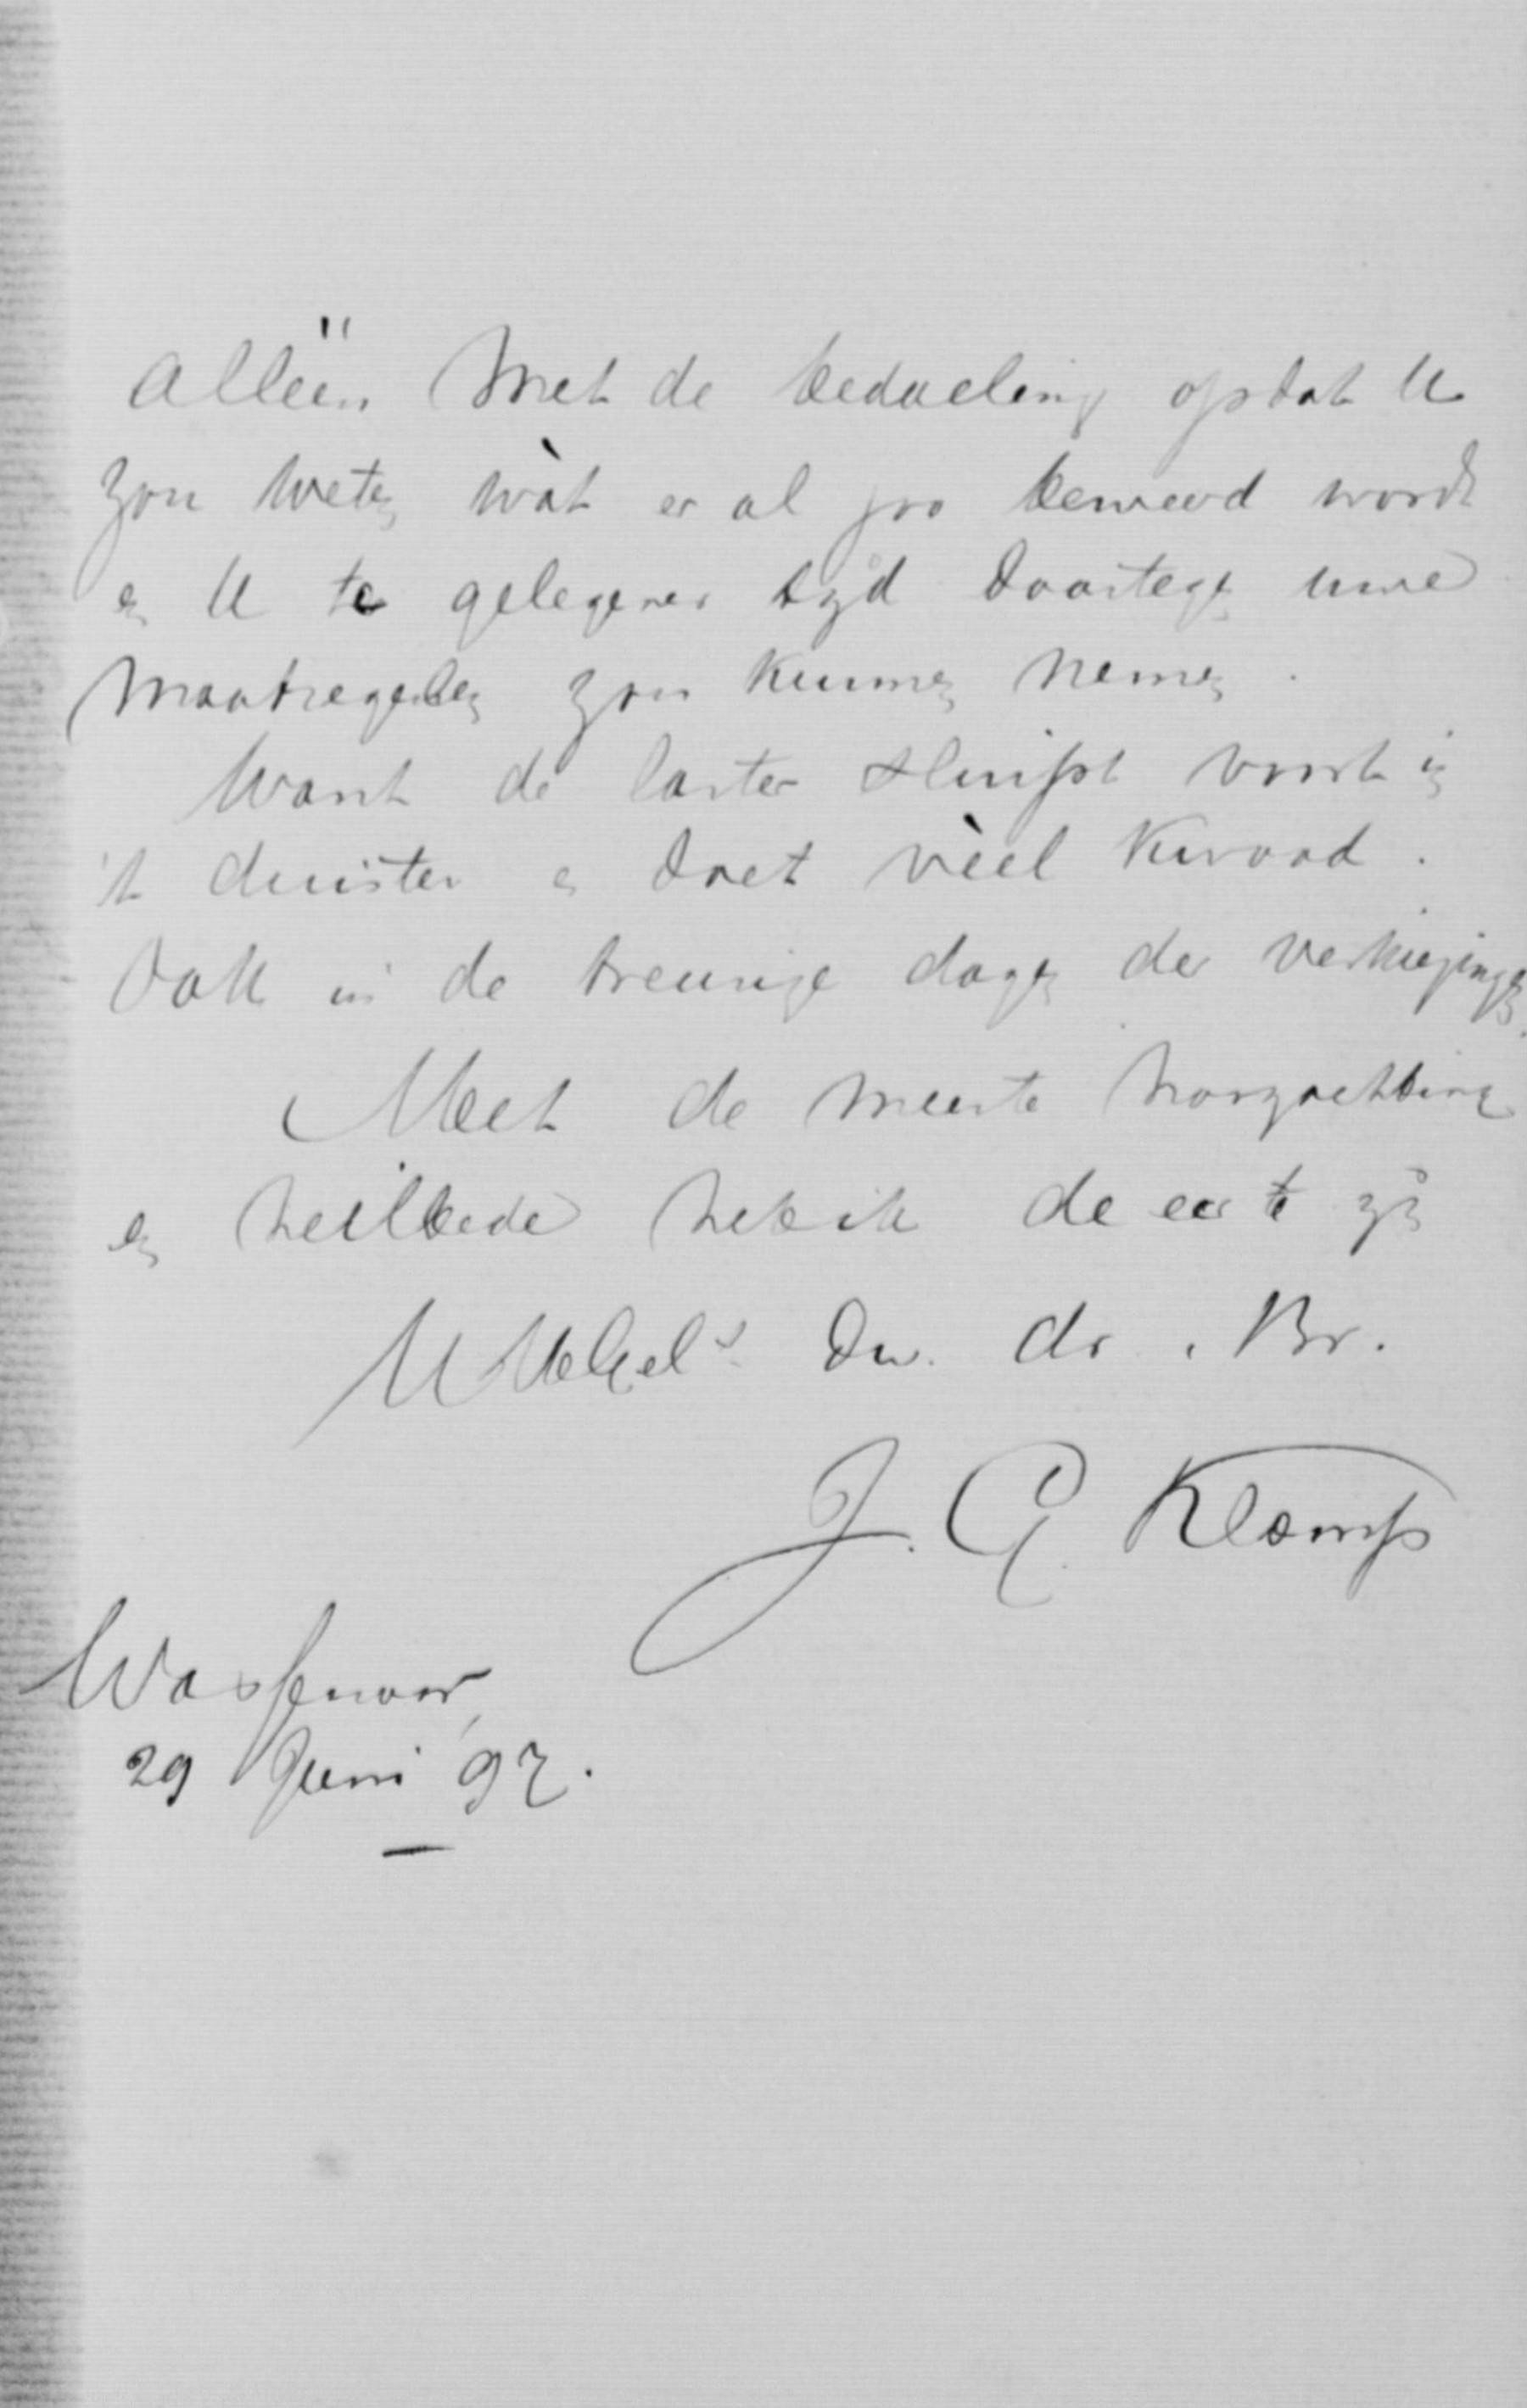 alléén met de bedoeling opdat U
zou weten wàt er al zoo beweerd wordt
en U te gelegener tijd daartegen uwe
maatregelen zou kunnen nemen.
Want de laster sluipt voort in
't duister en doet vèèl kwaad.
Ook in de treurige dagen der verkiezingen.
Met de meeste hoogachting
en heilbede heb ik de eer te zijn
UWelEds Dw. dr. Br.
J. C. Klomp
Wassenaar,
29 Juni 97.